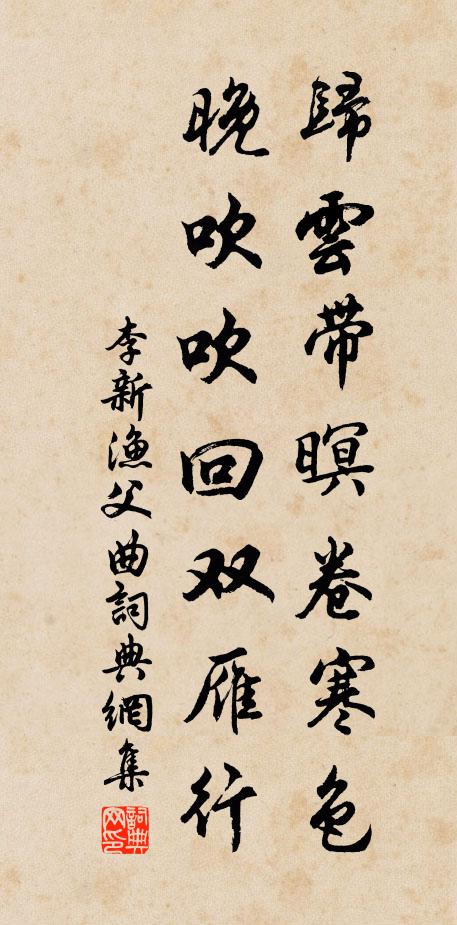 歸雲帶暝卷寒色
晚吹吹回双雁行
李新漁父曲詞典網集
詞典网印